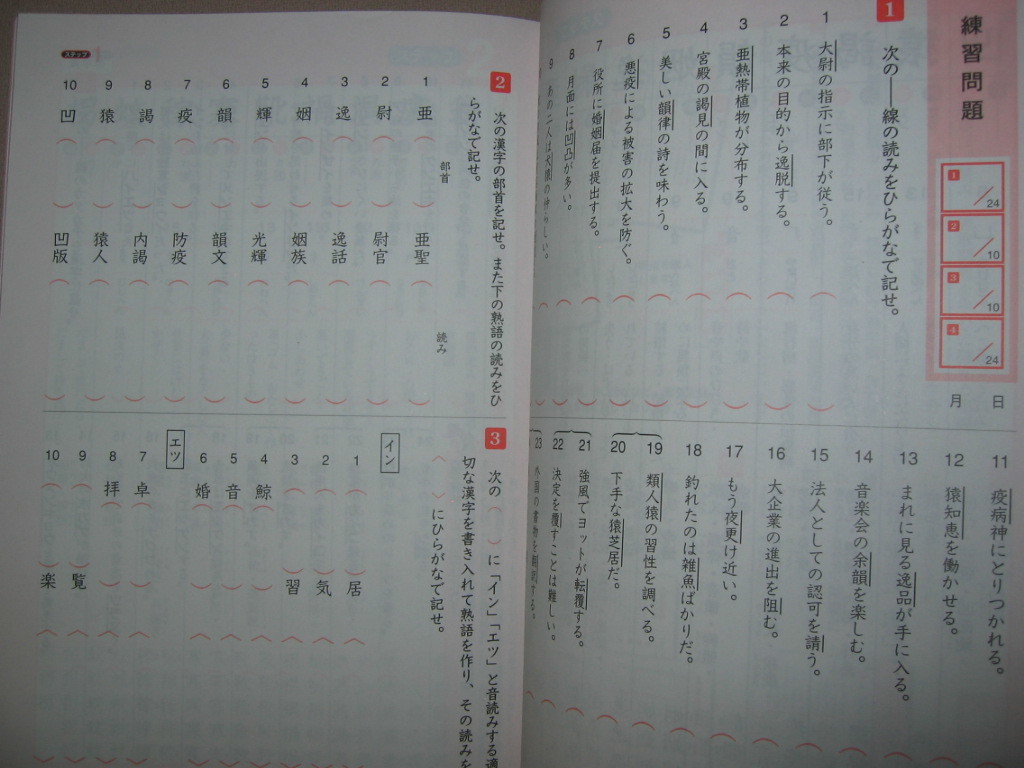 練習問題
1
24
2
10
3
10
4
24
月 日
1 次の――線の読みをひらがなで記せ。
1 大尉の指示に部下が従う。
2 本来の目的から逸脱する。
3 亜熱帯植物が分布する。
4 宮殿の謁見の間に入る。
5 美しい韻律の詩を味わう。
6 悪疫による被害の拡大を防ぐ。
7 役所に婚姻届を提出する。
8 月面には凹凸が多い。
9 あの二人は犬猿の仲らしい。
11 疫病神にとりつかれる。
12 猿知恵を働かせる。
13 まれに見る逸品が手に入る。
14 音楽会の余韻を楽しむ。
15 法人としての認可を請う。
16 大企業の進出を阻む。
17 もう夜更け近い。
18 釣れたのは雑魚ばかりだ。
19 類人猿の習性を調べる。
20 下手な猿芝居だ。
21 強風でヨットが転覆する。
22 決定を覆すことは難しい。
23 外国の書物を翻訳する。
ステップ 1
2 次の漢字の部首を記せ。また下の熟語の読みをひ
らがなで記せ。
部首 読み
1 亜( ) 亜聖( )
2 尉( ) 尉官( )
3 逸( ) 逸話( )
4 姻( ) 姻族( )
5 輝( ) 光輝( )
6 韻( ) 韻文( )
7 疫( ) 防疫( )
8 謁( ) 内謁( )
9 猿( ) 猿人( )
10 凹( ) 凹版( )
3 次の( )に「イン」「エツ」と音読みする適
切な漢字を書き入れて熟語を作り、その読みを
〈 〉にひらがなで記せ。
イン
1 ( )居〈
2 ( )気〈
3 ( )習〈
4 鯨( )〈
5 音( )〈
6 婚( )〈
エツ
7 卓( )〈
8 拝( )〈
9 ( )覧〈
10 ( )楽〈